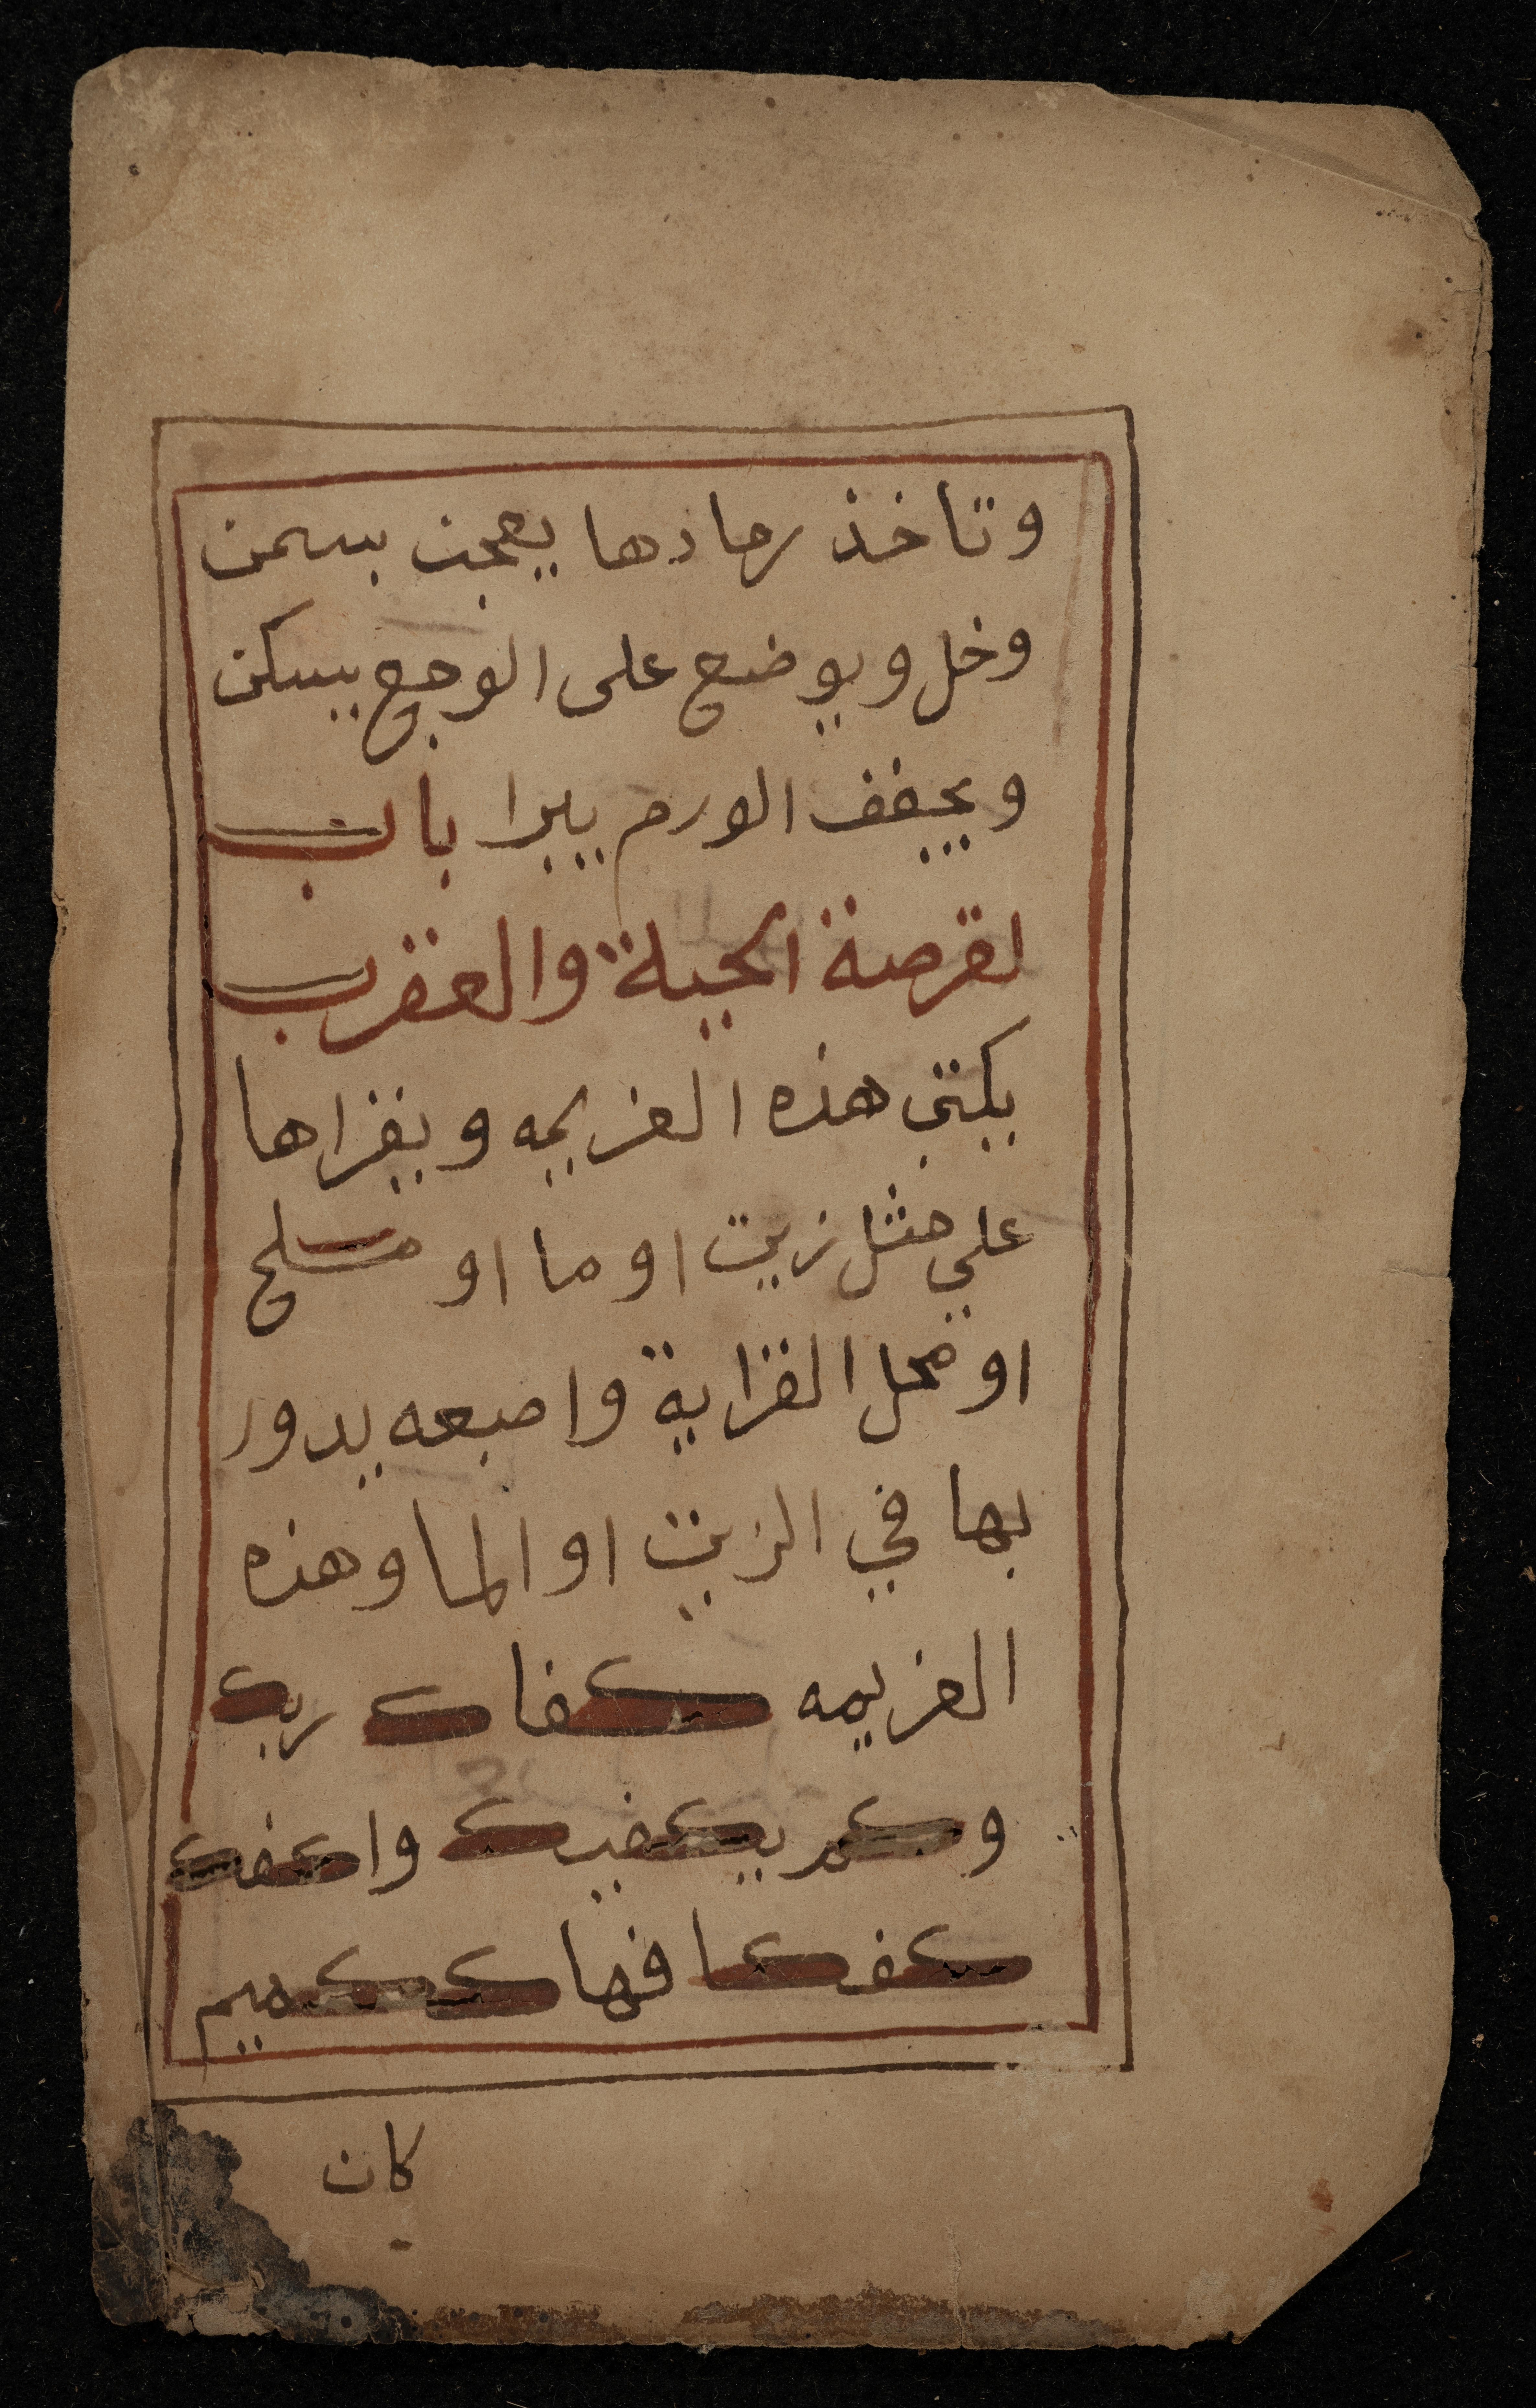 وتاخذ رمادها يعجن بسمن
وخل ويوضع على الوجع يسكن
ويجفف الورم يبرا باب
لقرصة الحية والعقرب
يكتب هذه العزيمه ويقراها
علي مثل زيت او ما او ملح
او محل القراية واصبعه يدور
بها في الزيت او الما وهذه
العزيمه كفاك ربك
وكم يكفيك واكفك
كفكافها ككميم
كان